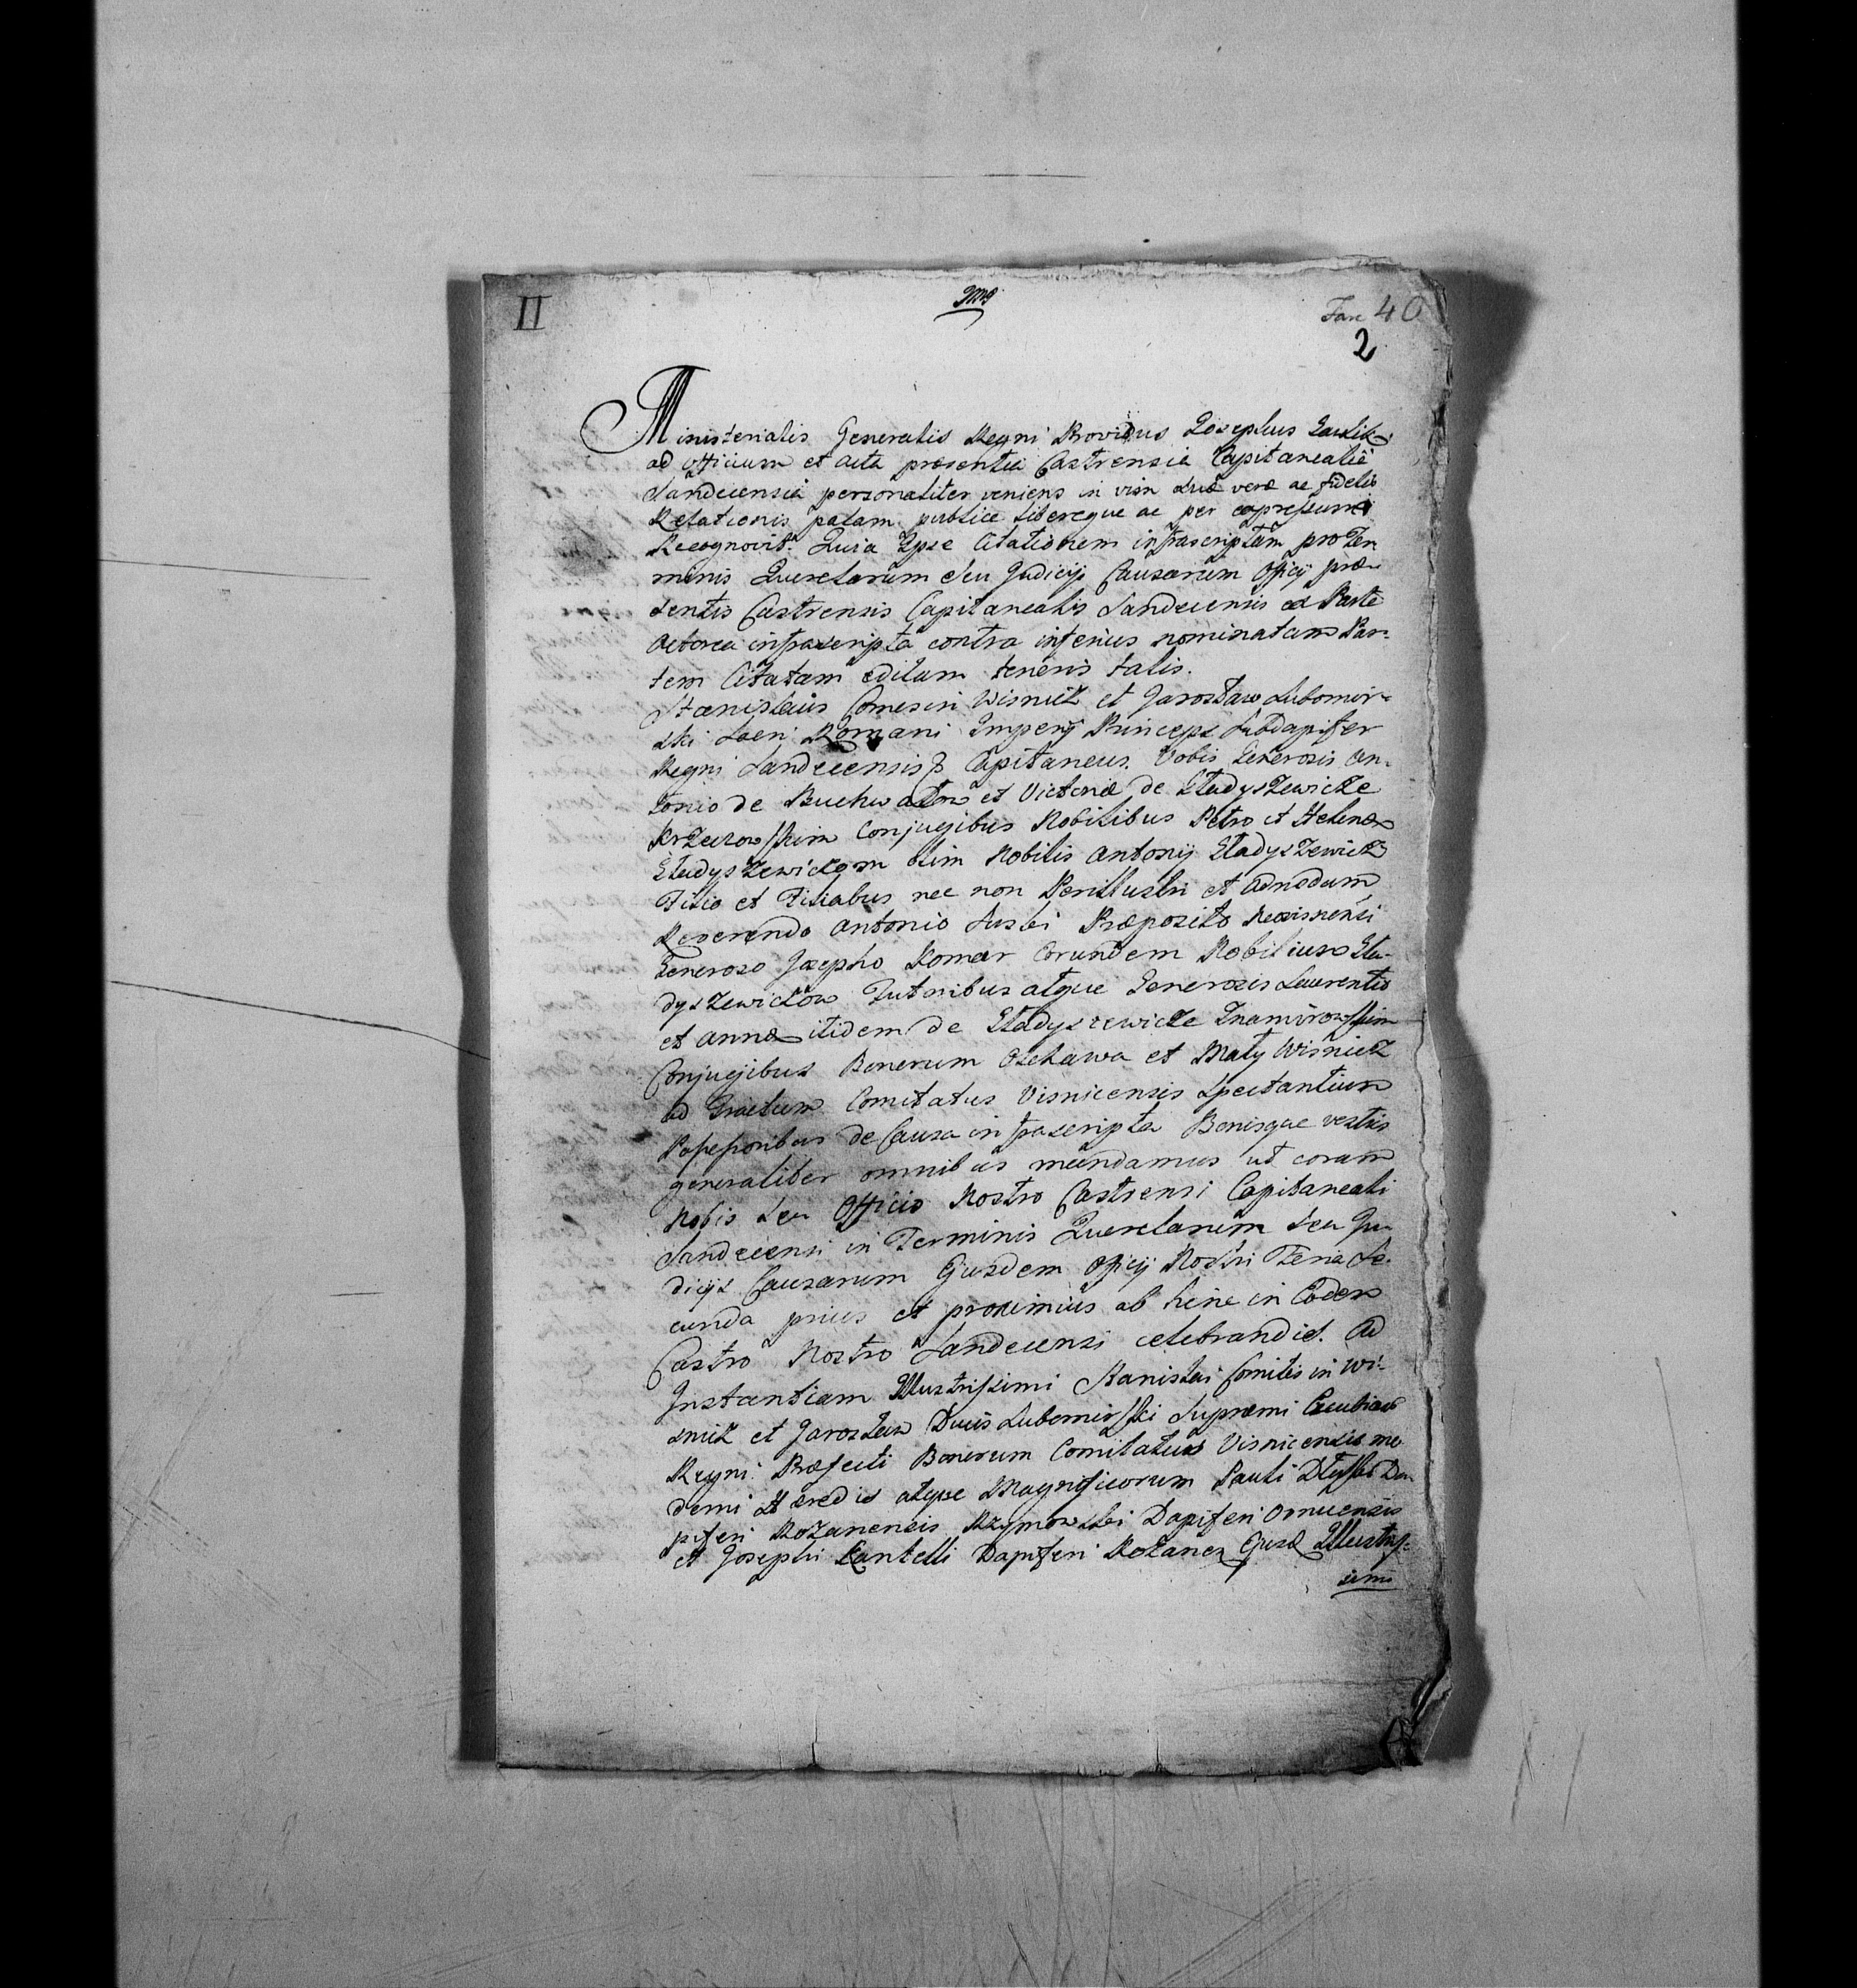 II
Fasc 40
2
Ministerialis Generalis Regni Providus Josephus
ad officium et acta præsentia Castrensia Capitanealia
Sandecensia personaliter veniens in vim suæ veræ ac fidelis
Relationis palam publice libereque ac per expressum
Recognovit. Quia Ipse Citationem infrascriptam pro Ter
minis Querelarum seu Judicij Causarum Officij præ
sentis Castrensis Capitanealis Sandecensis ex Parte
Actorea infrascripta contra inferius nominatam Par-
tem Citatam editam tenoris talis.
Stanislaus Comes in Wisnicz et Jarosław Lubomir-
ski Sacri Romani Imperij Princeps Subdapifer
Regni Sandecensis Capitaneus. Vobis Generosis An-
tonio de et Victoriæ de Gładyszewicze
Conjugibus Nobilibus Petro et Helenæ
Gładyszewiczom olim Nobilis Antonij Gładyszewicz
Filio et Filiabus nec non Perillustri et Admodum
Reverendo Antonio Præposito
Generoso Josepho Komar Eorundem Nobilium Gła-
dyszewiczow Tutoribus atque Generosis Laurentio
et Annæ itidem de Gładyszewicze Znamirowskim
Conjugibus Bonorum et Mały Wisnicz
ad Tractum Comitatus Visnicensis Spectantium
Possessoribus de Causa infrascripta Bonisque vestris
generaliter omnibus mandamus ut coram
Nobis seu Officio Nostro Castrensi Capitaneali
Sandecensi in Terminis Querelarum seu Ju-
dicijs Causarum Ejusdem Officij Nostri Feria Se-
cunda prius et proximius ab hinc in Eodem
Castro Nostro Sandecensi celebrandis. Ad
Instantiam Illustrissimi Stanislai Comitis in Wi-
snicz et Jarosław Ducis Lubomirski Supremi Excubiarum
Regni Præfecti Bonorum Comitatus Visnicensis mo
derni Hæredis atque Magnificorum Pauli Da-
piferi Rozanensis Dapiferi
et Josephi Cantelli Dapiferi Rozanen Ejusd Illustris-
simi